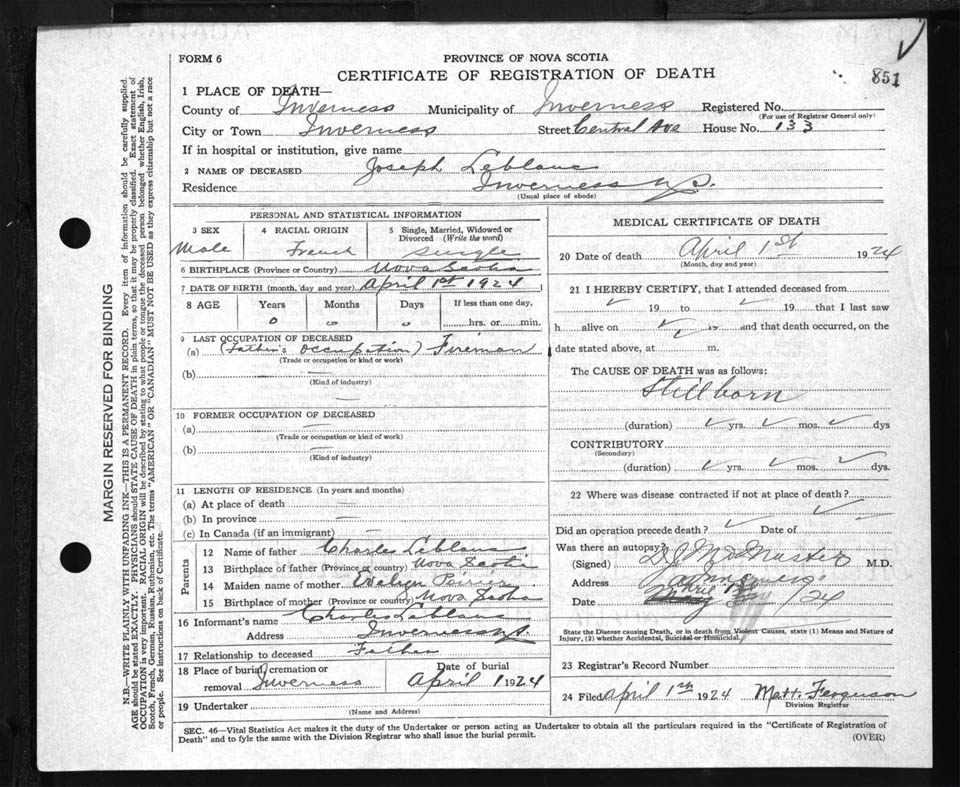 FORM 6
PROVINCE OF NOVA SCOTIA
CERTIFICATE OF REGISTRATION OF DEATH
851
1 PLACE OF DEATH—
County of Inverness Municipality of Inverness Registered No.
(For use of Registrar General only)
City or Town Inverness Street Central Ave House No. 133
If in hospital or institution, give name
2 NAME OF DECEASED Joseph Leblanc
Residence Inverness N.S.
(Usual place of abode)
PERSONAL AND STATISTICAL INFORMATION
3 SEX 4 RACIAL ORIGIN 5 Single, Married, Widowed or Divorced (Write the word)
Male French Single
6 BIRTHPLACE (Province or Country) Nova Scotia
7 DATE OF BIRTH (month, day and year) April 1st 1924
8 AGE Years Months Days If less than one day,
0 0 0 hrs. or min.
9 LAST OCCUPATION OF DECEASED
(a) (Father's occupation) Fireman
(Trade or occupation or kind or work)
(b) —
(Kind of industry)
—
10 FORMER OCCUPATION OF DECEASED
(a) —
(Trade or occupation or kind of work)
(b) —
(Kind of industry)
11 LENGTH OF RESIDENCE (In years and months)
(a) At place of death —
(b) In province —
(c) In Canada (if an immigrant) —
Parents
12 Name of father Charles Leblanc
13 Birthplace of father (Province or country) Nova Scotia
14 Maiden name of mother Evelyn
15 Birthplace of mother (Province or country) Nova Scotia
16 Informant's name Charles Leblanc
Address Inverness N.S.
17 Relationship to deceased Father
18 Place of burial, cremation or removal Inverness
Date of burial April 1 1924
19 Undertaker
(Name and Address)
MEDICAL CERTIFICATE OF DEATH
20 Date of death April 1st 1924
(Month, day and year)
21 I HEREBY CERTIFY, that I attended deceased from
19 to 19 that I last saw
h alive on 19 and that death occurred, on the
date stated above, at m.
The CAUSE OF DEATH was as follows:
Stillborn
(duration) yrs. mos. dys
CONTRIBUTORY
(Secondary)
(duration) yrs. mos. dys.
22 Where was disease contracted if not at place of death?
Did an operation precede death? Date of
Was there an autopsy?
(Signed) McMaster M.D.
Address
Date April /24
State the Disease causing Death, or in death from Violent Causes, state (1) Means and Nature of
Injury, (2) whether Accidental, Suicidal or Homicidal.
23 Registrar's Record Number
24 Filed April 1th 1924 Matt. Ferguson
Division Registrar
SEC. 46—Vital Statistics Act makes it the duty of the Undertaker or person acting as Undertaker to obtain all the particulars required in the "Certificate of Registration of
Death" and to fyle the same with the Division Registrar who shall issue the burial permit.
(OVER)
MARGIN RESERVED FOR BINDING
N.B.—WRITE PLAINLY WITH UNFADING INK—THIS IS A PERMANENT RECORD. Every item of information should be carefully supplied.
AGE should be stated EXACTLY. PHYSICIANS should STATE CAUSE OF DEATH in plain terms, so that it may be properly classified. Exact statement of
OCCUPATION is very important. RACIAL ORIGIN will be described by stating to what people or tongue the deceased person belonged whether English, Irish,
Scotch, French, German, Russian, Ruthenian, etc. The terms "AMERICAN" OR "CANADIAN" MUST NOT BE USED as they express citizenship but not a race
or people. See instructions on back of Certificate.